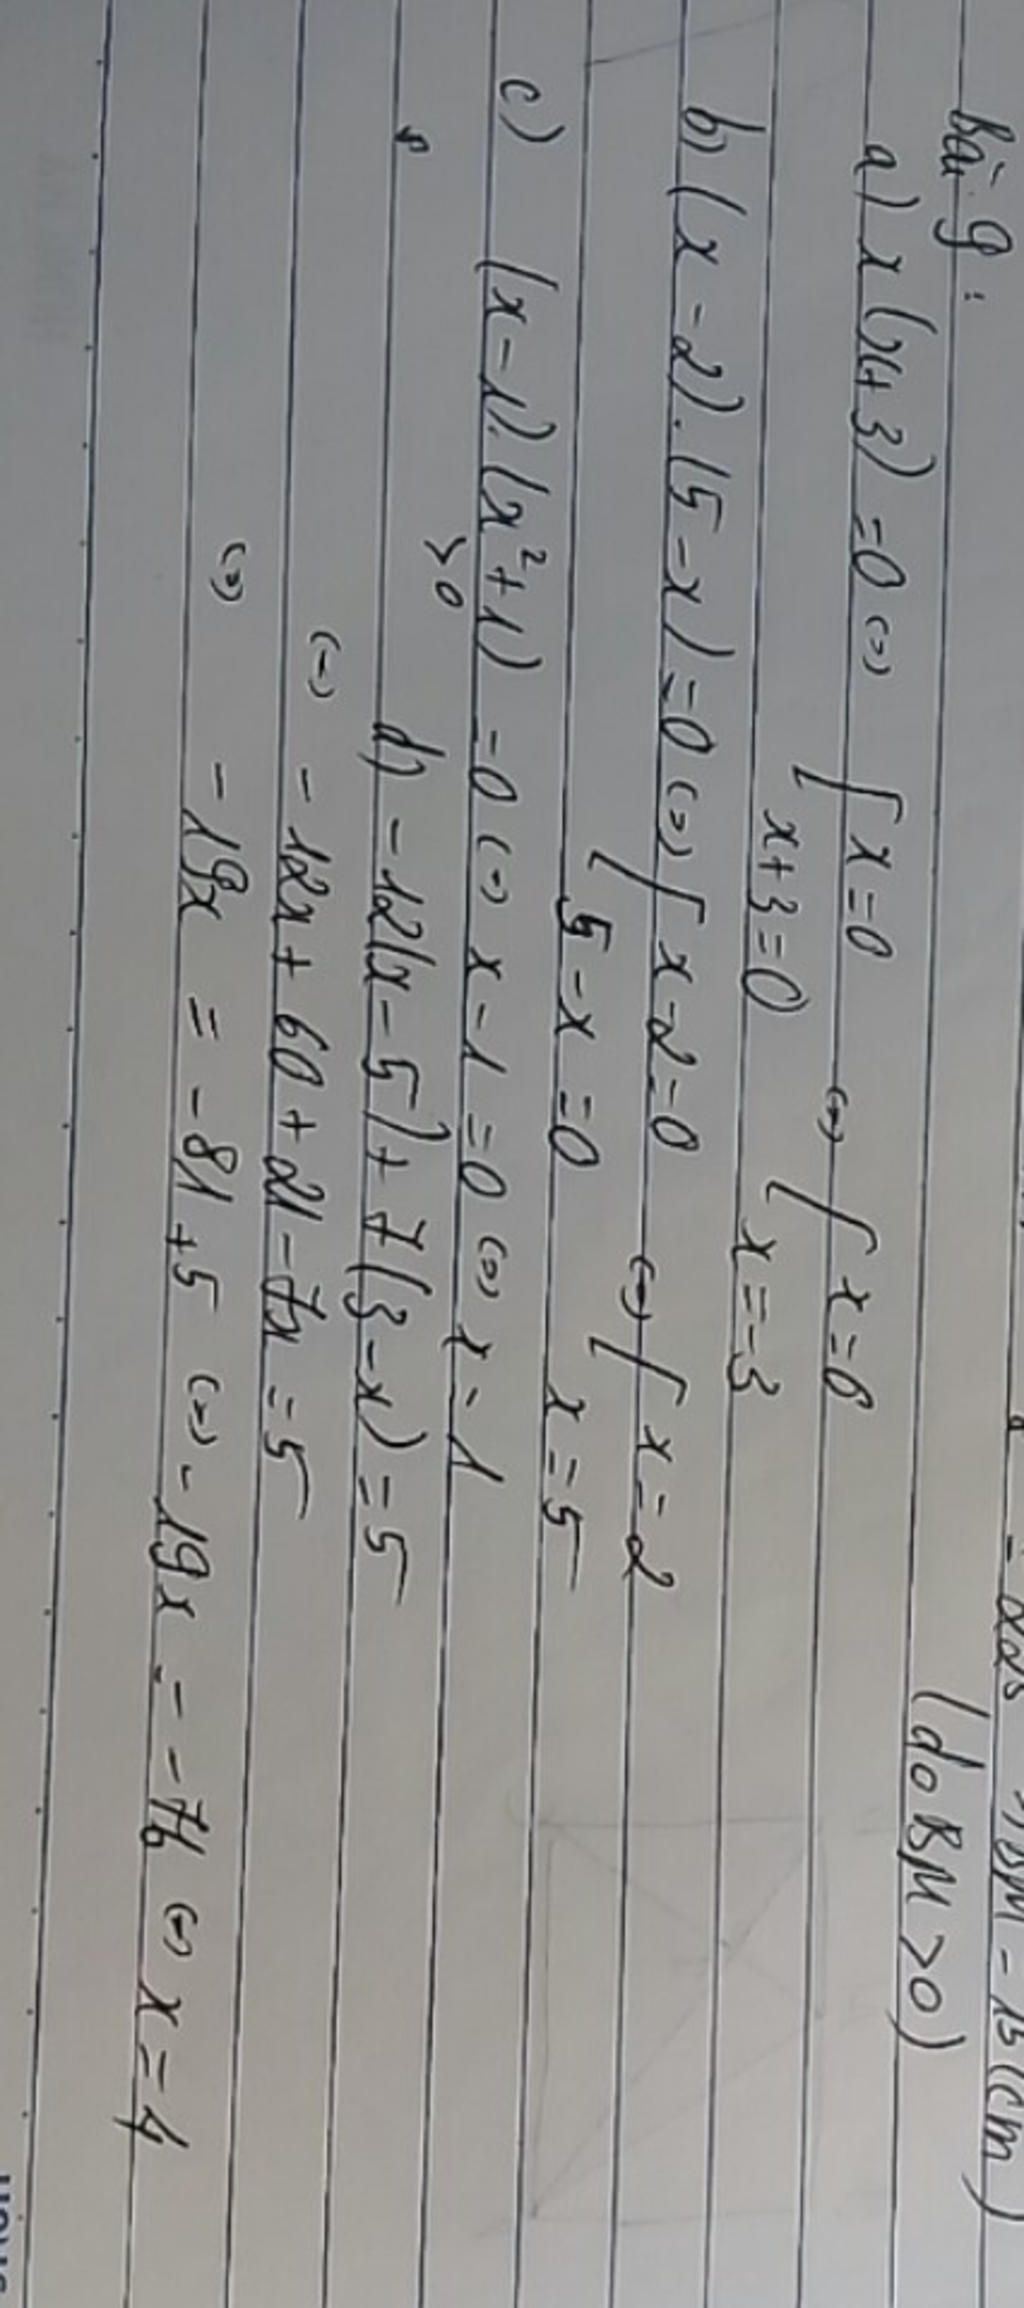 = 225 => BM = 15 (cm)
(do BM > 0)
Bài 9:
a) x(x+3) = 0 <=> [ x = 0 <=> [ x = 0
x+3 = 0 x = -3
b) (x-2).(5-x) = 0 <=> [ x-2 = 0 <=> [ x = 2
5-x = 0 x = 5
c) (x-1).(x²+1) = 0 <=> x-1 = 0 <=> x = 1
>0
d) -12(x-5) + 7(3-x) = 5
<=> -12x + 60 + 21 - 7x = 5
<=> -19x = -81 + 5 <=> -19x = -76 <=> x = 4